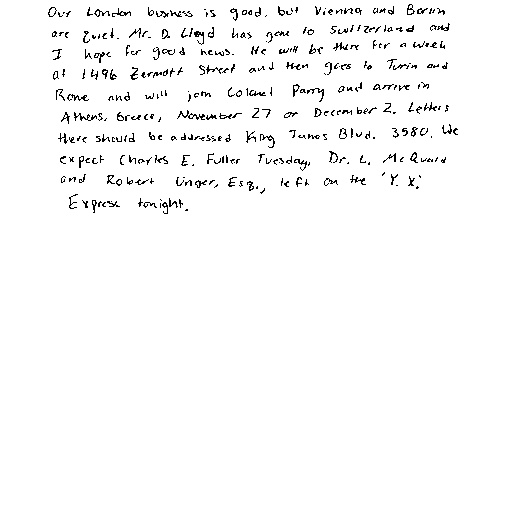 Our London business is good, but Vienna and Berlin
are quiet. Mr. D. Lloyd has gone to Switzerland and
I hope for good news. He will be there for a week
at 1496 Zermott Street and then goes to Turin and
Rome and will join Colonel Parry and arrive in
Athens, Greece, November 27 or December 2. Letters
there should be addressed King James Blvd. 3580. We
expect Charles E. Fuller Tuesday, Dr. L. McQuaid
and Robert Unger, Esq., left on the 'Y. X.'
Express tonight.